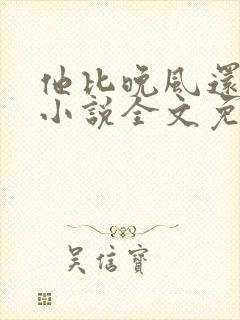 他比晚风還
小說全文免
吳信寶